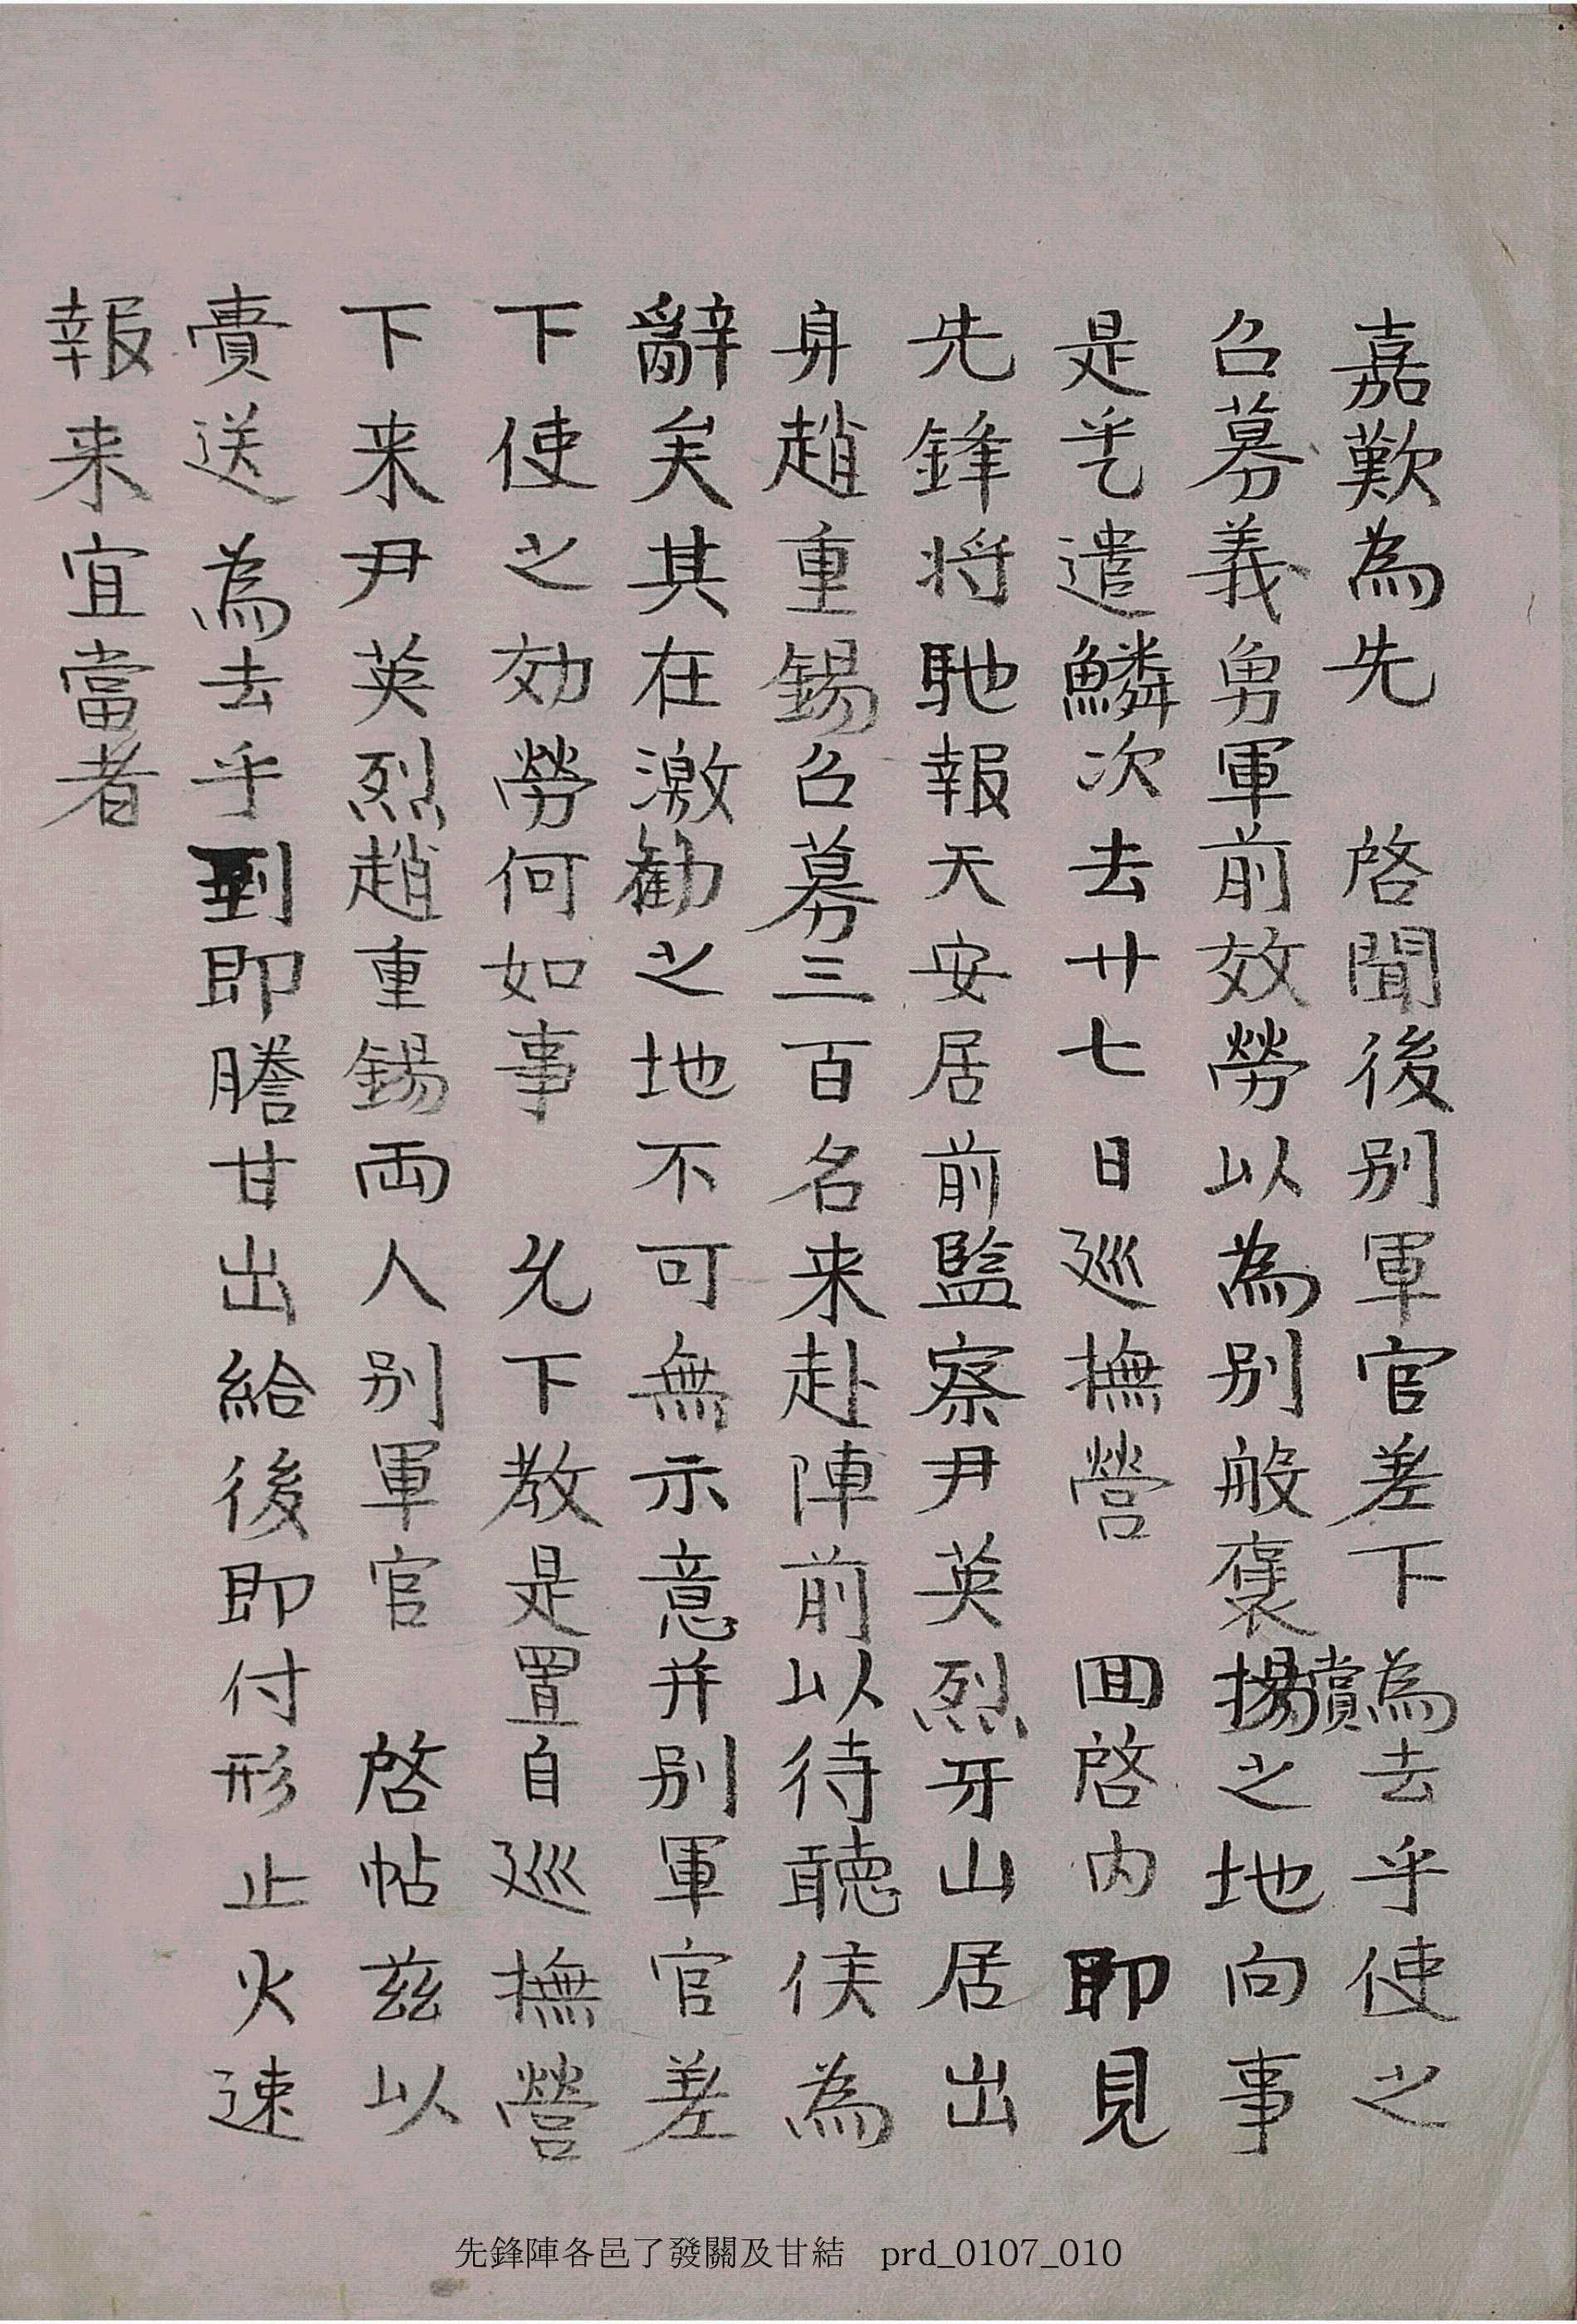 嘉歎為先　啓聞後别軍官差下為去乎使之
召募義勇軍前效勞以為别般褒揚賞之地向事
是乎遣鱗次去廿七日巡撫營　回啓内即見
先鋒将馳報天安居前監察尹英烈牙山居出
身趙重錫召募三百名来赴陣前以待聽候為
辭矣其在激勸之地不可無示意并别軍官差
下使之効勞何如事　允下教是置自巡撫營
下来尹英烈趙重錫両人别軍官　啓帖茲以
賷送為去乎到即謄甘出給後即付形止火速
報来宜當者
先鋒陣各邑了發關及甘結 prd_0107_010